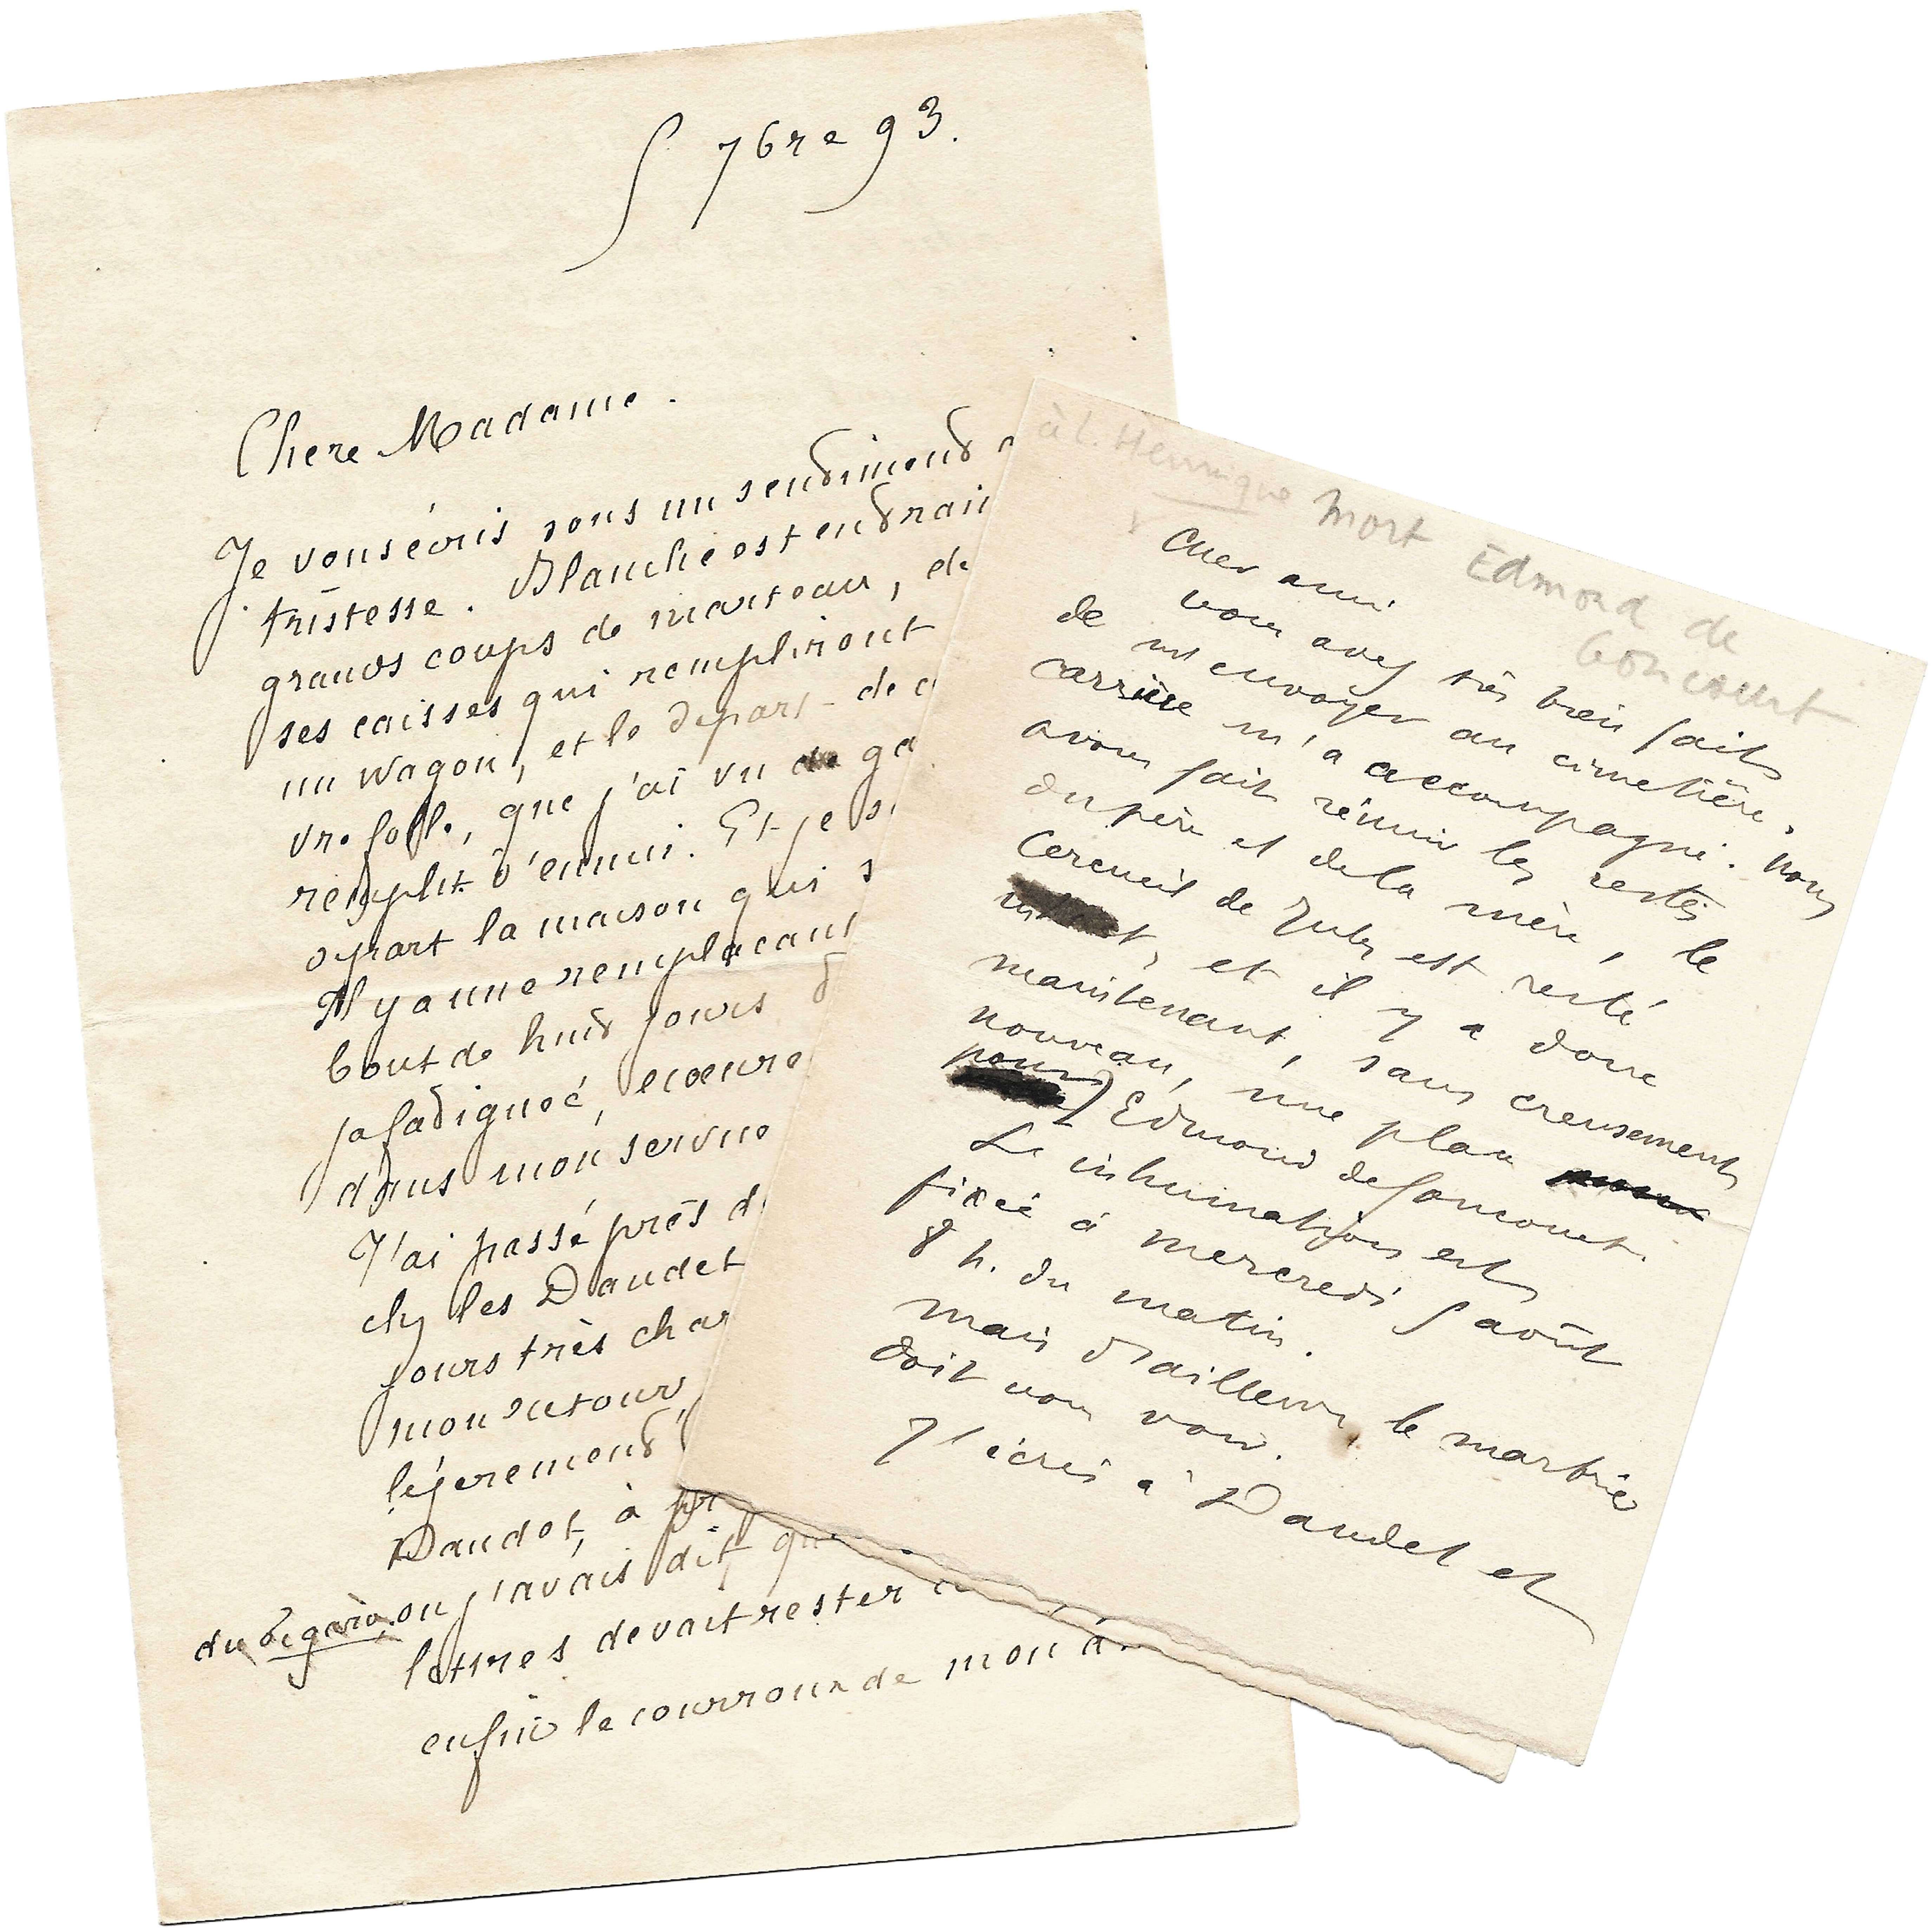 5 7bre 93.
Chere Madame.
Je vous écris sous un sentiment
tristesse. Blanche est en train
grands coups de marteau, de
ses caisses qui rempliront
un wagon, et le départ de
vre folle, que j'ai vu
remplit d'ennui. Et je
opart la maison qui
Il y a une remplacant
bout de huit jours
ja fatiguée, ecœure
dans mon service
J'ai passé près d
chz les Daudet
jours très char
mon retour,
légerement
Daudet, à pr
du Figaro, ou j'avais dit, qu
lettres devait rester
enfin le courroux de mon
à L. Hennique Mort Edmond de
Goncourt
Cher ami
vous avez très bien fait
de m'envoyer au cimetière.
Carrière m'a accompagné. Nous
avons fait réunir les restes
du père et de la mère, le
cercueil de Jules est resté
et il y a donc
maintenant, sans creusement
nouveau, une place
pour Edmond de Goncourt.
L'inhumation est
fixée à mercredi 5 août
8 h. du matin.
Mais d'ailleurs le marbrier
doit vous voir.
J'écris à Daudet et